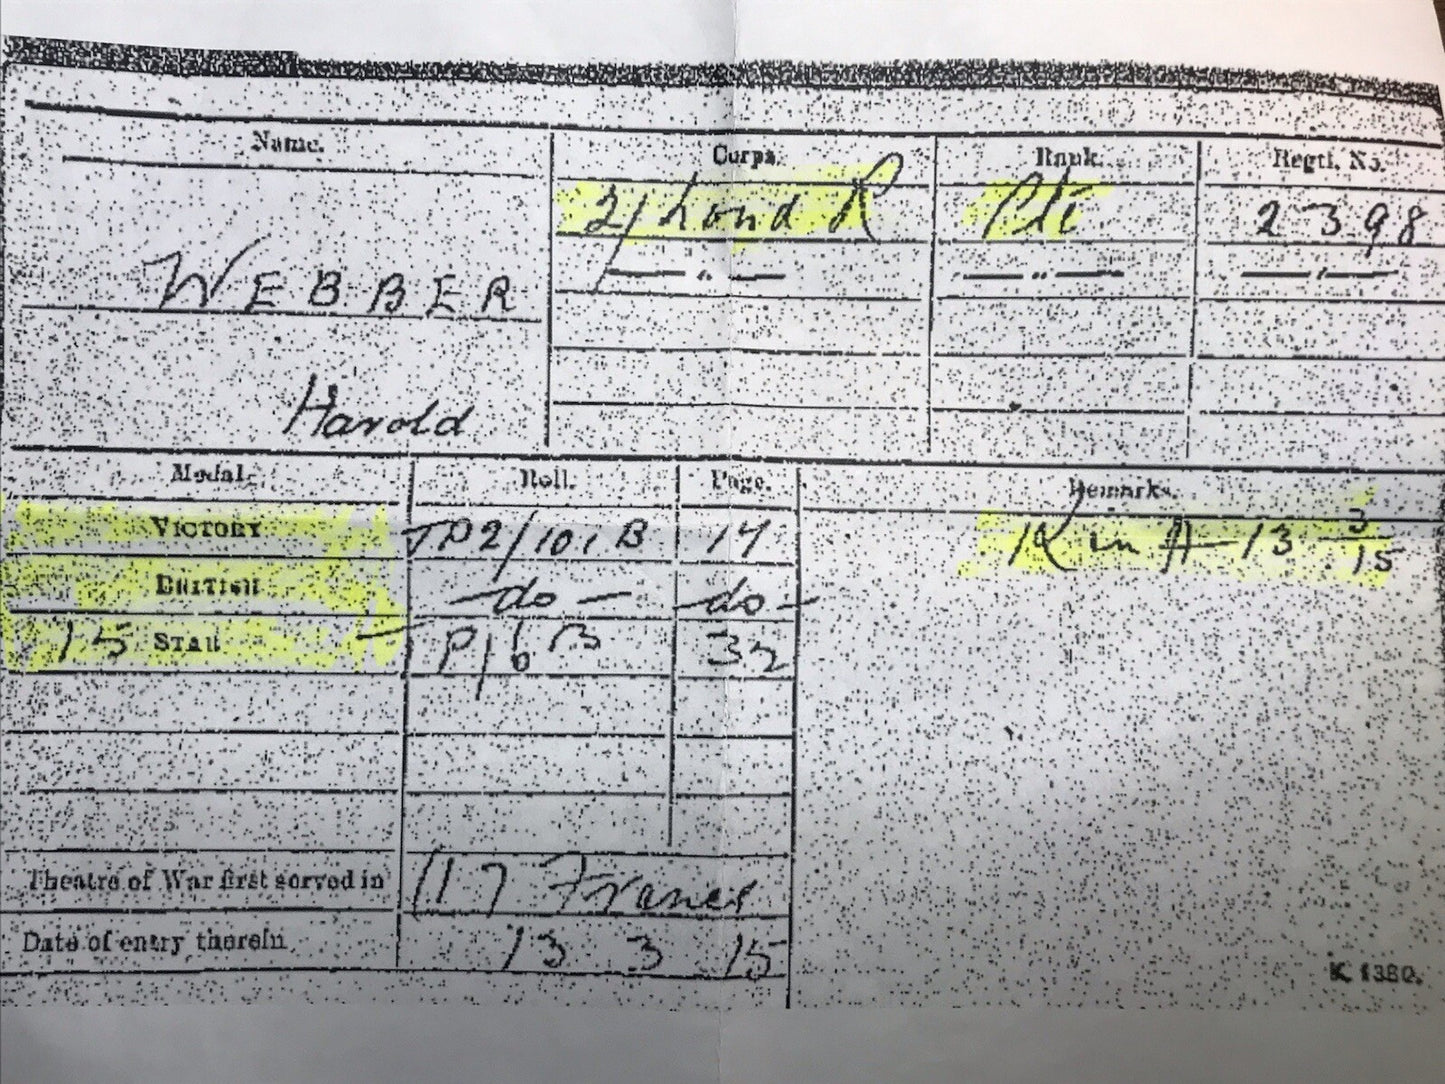 Name. Corps. Rank. Regtl. No.
2/Lond R Pte 2398
WEBBER — " — — " — — " —
Harold
Medal. Roll. Page. Remarks.
VICTORY TP2/101B 14 K in A 13 3/15
BRITISH — do — — do —
15 STAR P/6B 32
Theatre of War first served in (1) France
Date of entry therein 13 3 15
K 1380.